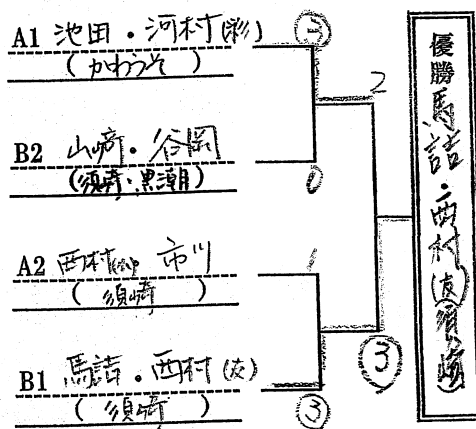 A1 池田・河村(彩) ③
(かわうそ)
2
B2 山崎・谷岡 0
(須崎・黒潮)
A2 西村 市川 1
(須崎)
③
B1 馬詰・西村(友) ③
(須崎)
優勝 馬詰・西村(友)(須崎)